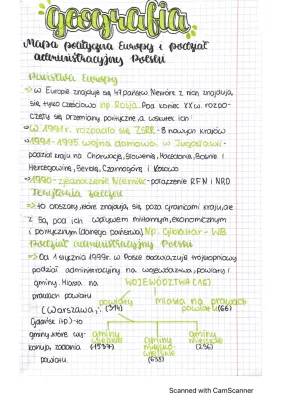 geografia
Mapa polityczna Europy i podział
administracyjny Polski
Państwa Europy
→ w Europie znajduje się 47 państw. Niektóre z nich znajdują
się tylko częściowo np. Rosja. Pod koniec XX w. rozpo-
częły się przemiany polityczne a wskutek ich:
→ W 1991r. rozpadło się ZSRR - 8 nowych krajów
→ 1991-1995 wojna domowa w Jugosławii -
podział kraju na Chorwację, Słowenię, Macedonię, Bośnię i
Hercegowinę, Serbię, Czarnogórę i Kosowo
→ 1990 - zjednoczenie Niemiec - połączenie RFN i NRD
Terytoria zależne
→ to obszary, które znajdują się poza granicami kraju, ale
są pod ich wpływem militarnym, ekonomicznym
i politycznym (danego państwa). Np. Gibraltar - WB
Podział administracyjny Polski
→ Od 1 stycznia 1999r. w Polsce obowiązuje trójstopniowy
podział administracyjny na województwa, powiaty i
gminy. Miasta na
prawach powiatu
(Warszawa,
Gdańsk itp.) - to
gminy, które wy-
konują zadania
powiatu.
WOJEWÓDZTWA (16)
powiaty
(314)
miasta na prawach
powiatu (66)
gminy
wiejskie
(1537)
gminy
miejsko-
wiejskie
(638)
gminy
miejskie
(236)
Scanned with CamScanner